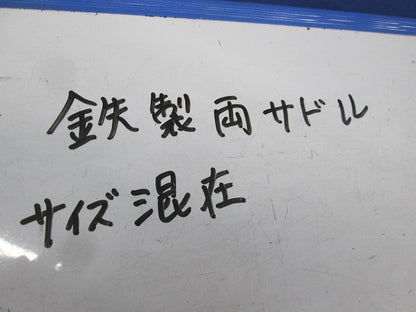 鉄製両サドル
サイズ混在